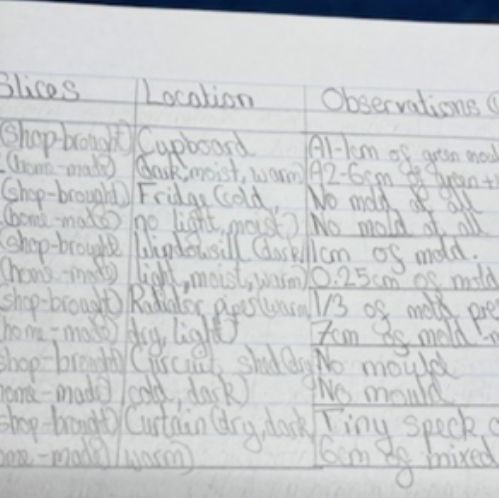 Slices Location Observations
(shop-brought) Cupboard A1-1cm of green moul
(home-made) (dark, moist, warm) A2-6cm of green +
(shop-brought) Fridge (cold, No mold at all
(home-made) no light, moist) No mold at all
(shop-brought Windowsill (dark/ 1cm of mold.
(home-made) light, moist, warm) 0.25cm of mold
(shop-brought) Radiator pipes (warm, 1/3 of mold pre
home-made) dry, light) 7cm of mold
shop-brought) Circuit shed (dry No mould
home-made) cold, dark) No mould
shop-brought) Curtain (dry, dark Tiny speck
ome-made) warm) 6cm of mixed